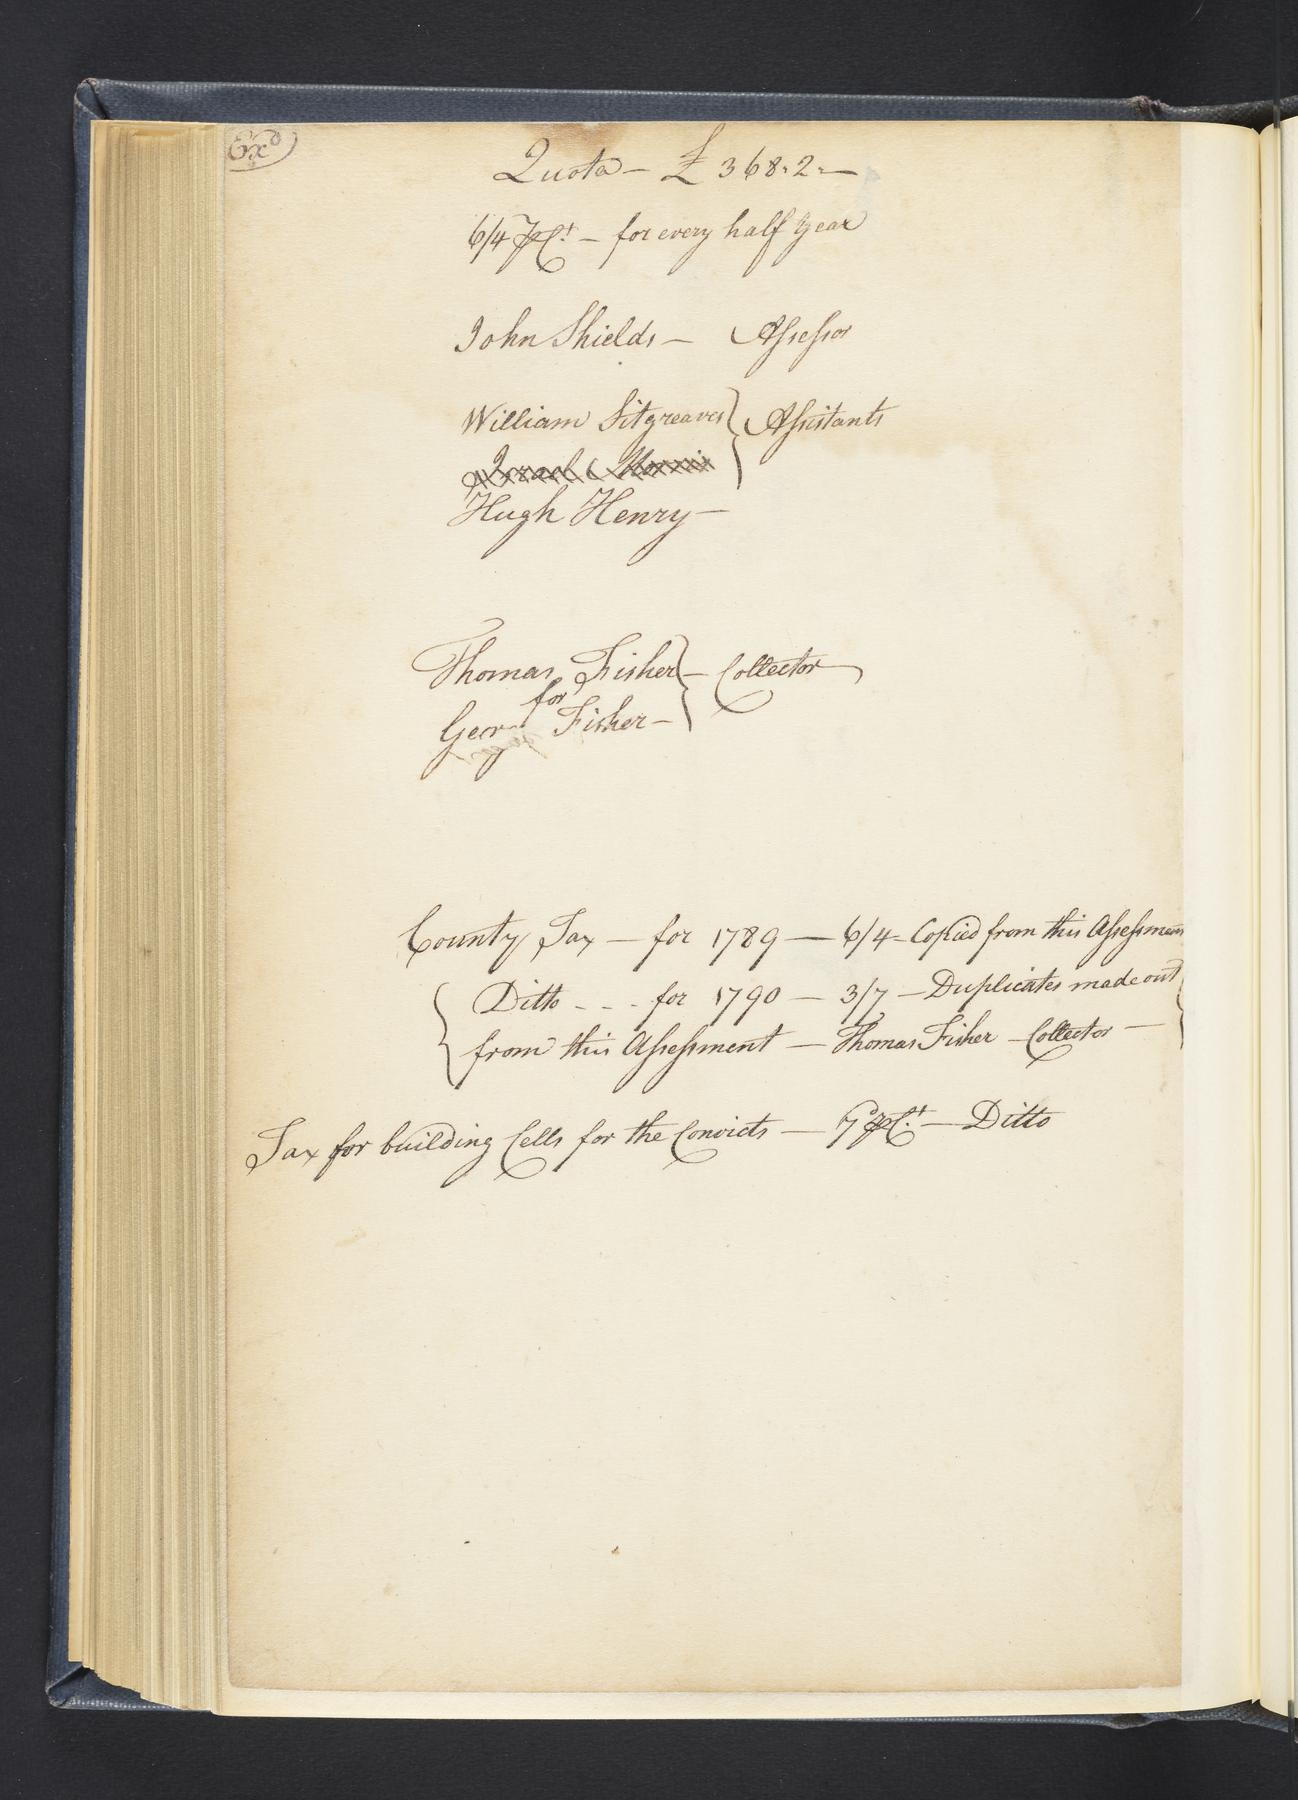 Exd
Quota — £ 368.2.—
6/4 ⅌ Ct. — for every half Year
John Shields — Assessor
William Sitgreaves } Assistants
Israel Morris
Hugh Henry —
Thomas Fisher } — Collector
for
George Fisher —
County Tax — for 1789 — 6/4 — Copied from this Assessment
{ Ditto - - - for 1790 — 3/7 — Duplicates made out }
from this Assessment — Thomas Fisher — Collector —
Tax for building Cells for the Convicts — ⅌ Ct. — Ditto